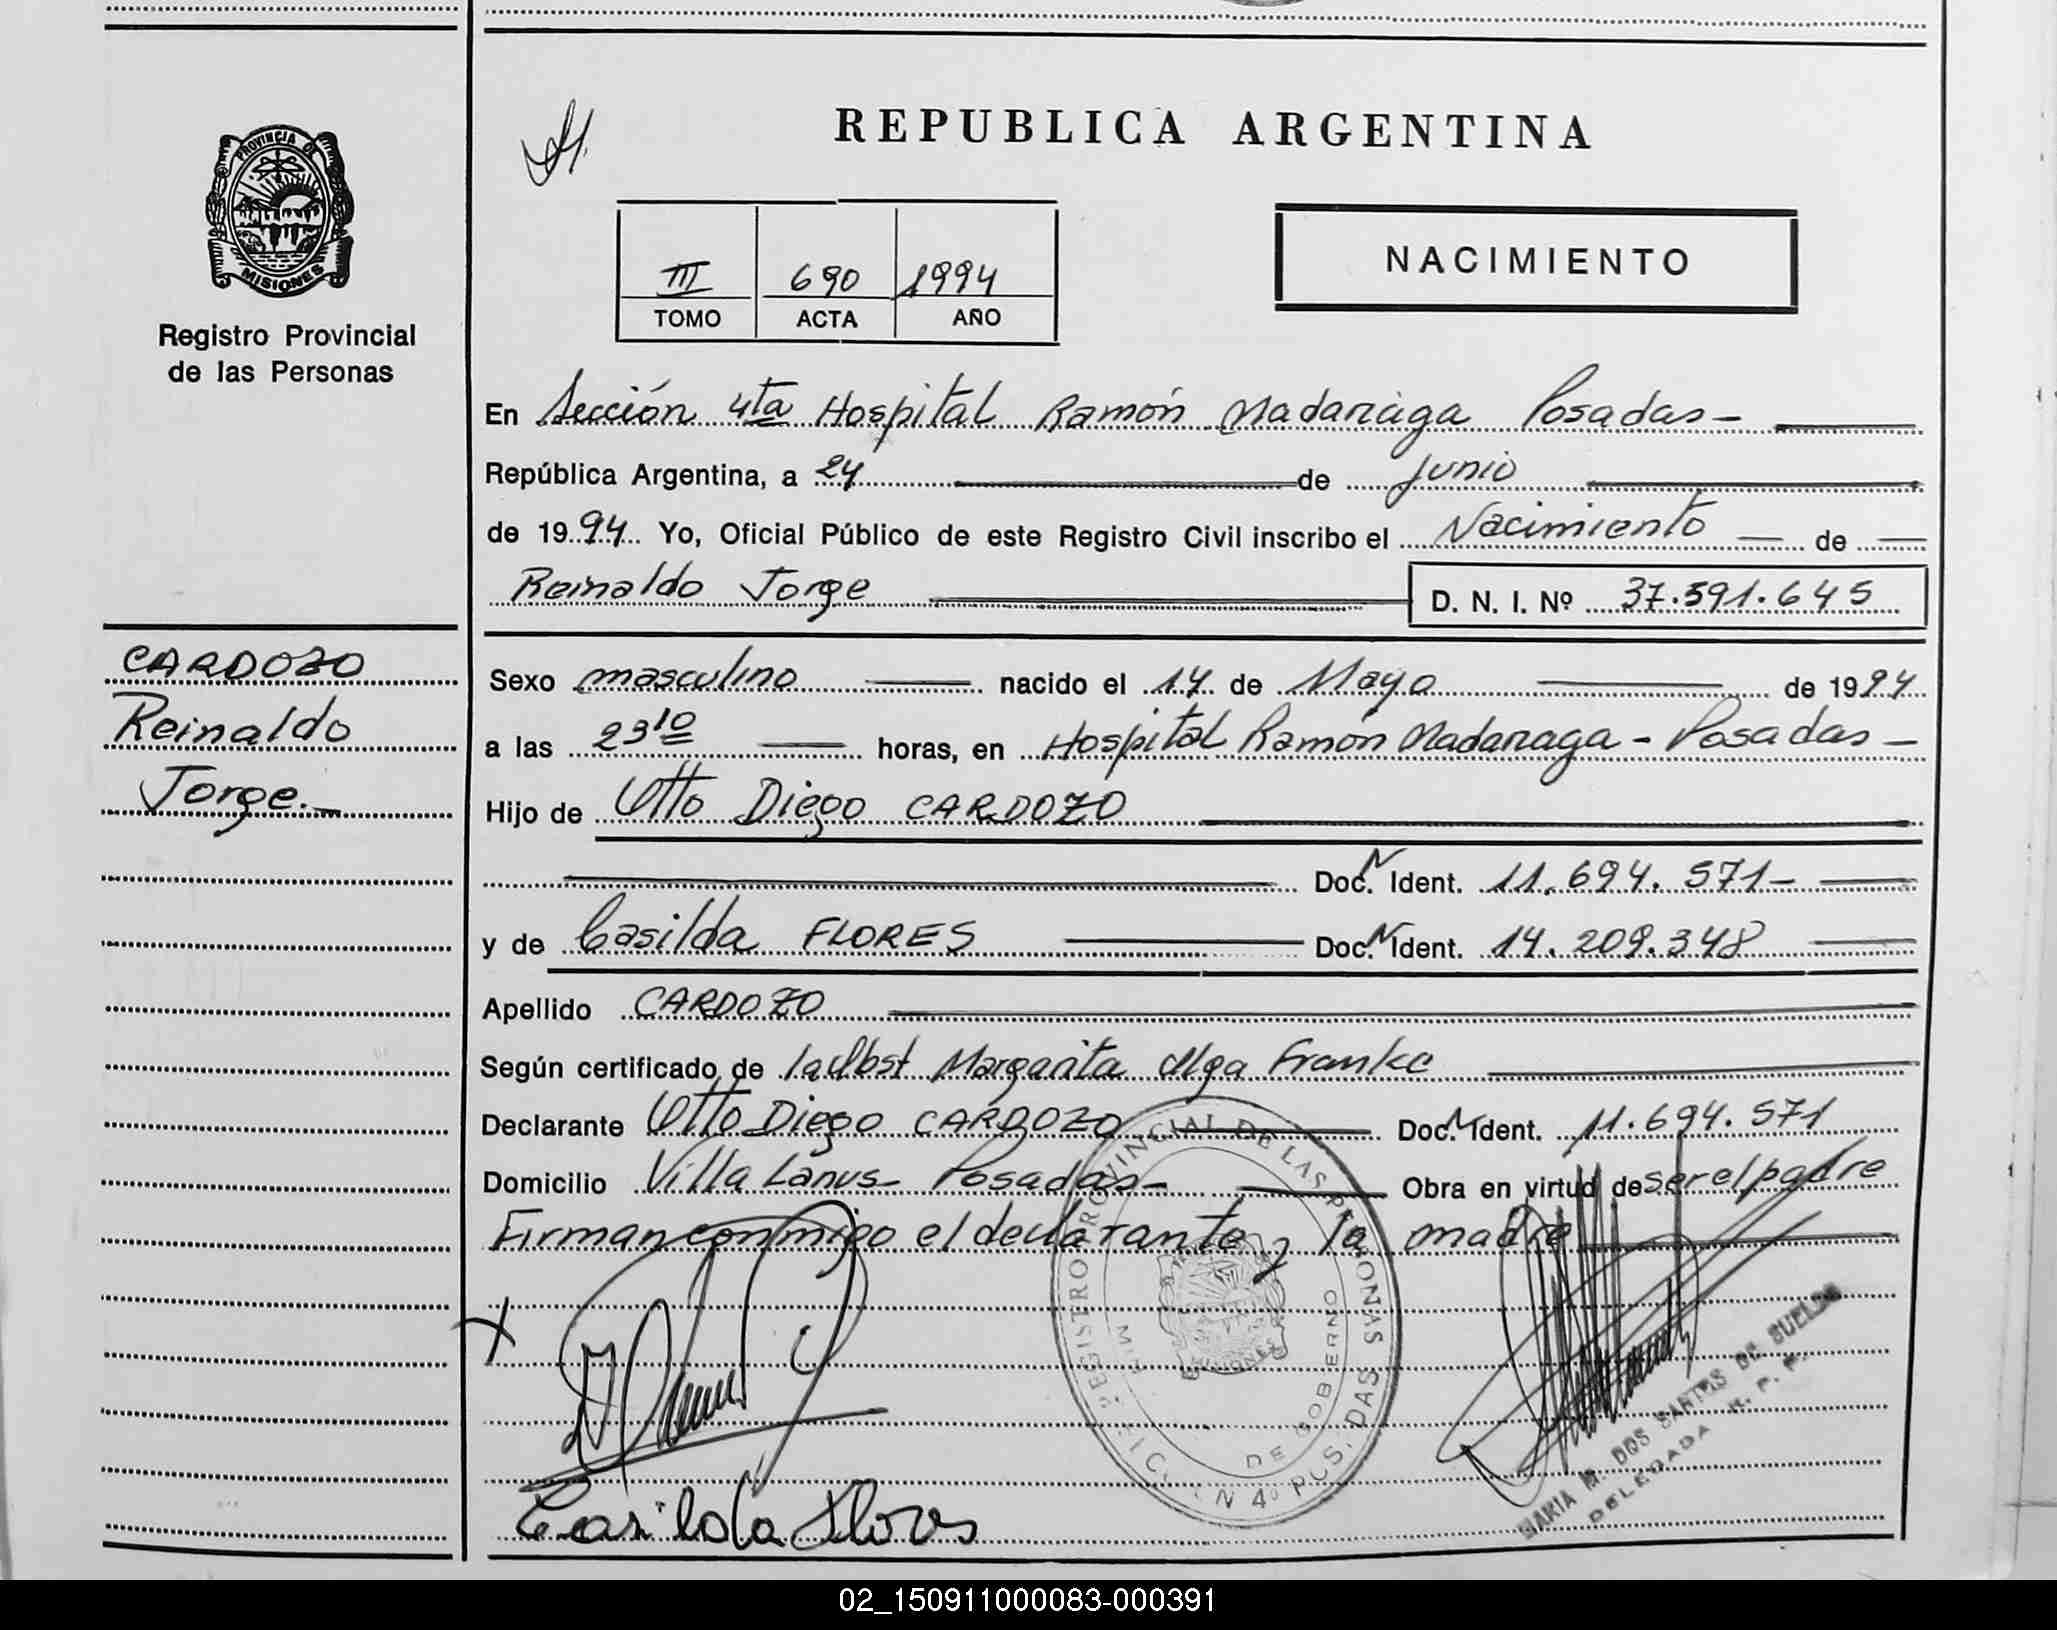 PROVINCIA DE
MISIONES
Registro Provincial
de las Personas
CARDOZO
Reinaldo
Jorge.-
REPUBLICA ARGENTINA
III 690 1994
TOMO ACTA AÑO
NACIMIENTO
En Sección 4ta Hospital Ramón Madariaga Posadas-
República Argentina, a 24 de junio
de 1994 Yo, Oficial Público de este Registro Civil inscribo el Nacimiento de
Reinaldo Jorge D. N. I. Nº 37.591.645
Sexo masculino nacido el 14 de Mayo de 1994
a las 23 10 horas, en Hospital Ramón Madariaga - Posadas -
Hijo de Otto Diego CARDOZO
Doc. N Ident. 11.694.571-
y de Casilda FLORES Doc. N Ident. 14.209.348
Apellido CARDOZO
Según certificado de la Obst Margarita Olga Franke
Declarante Otto Diego CARDOZO Doc. N Ident. 11.694.571
Domicilio Villa Lanus- Posadas- Obra en virtud de ser el padre
Firman conmigo el declarante y la madre
REGISTRO PROVINCIAL DE LAS PERSONAS
DE GOBIERNO
MISIONES
Casilda Flores
MARIA M. DOS SANTOS DE BUELDO
DELEGADA R. P. P.
02_150911000083-000391